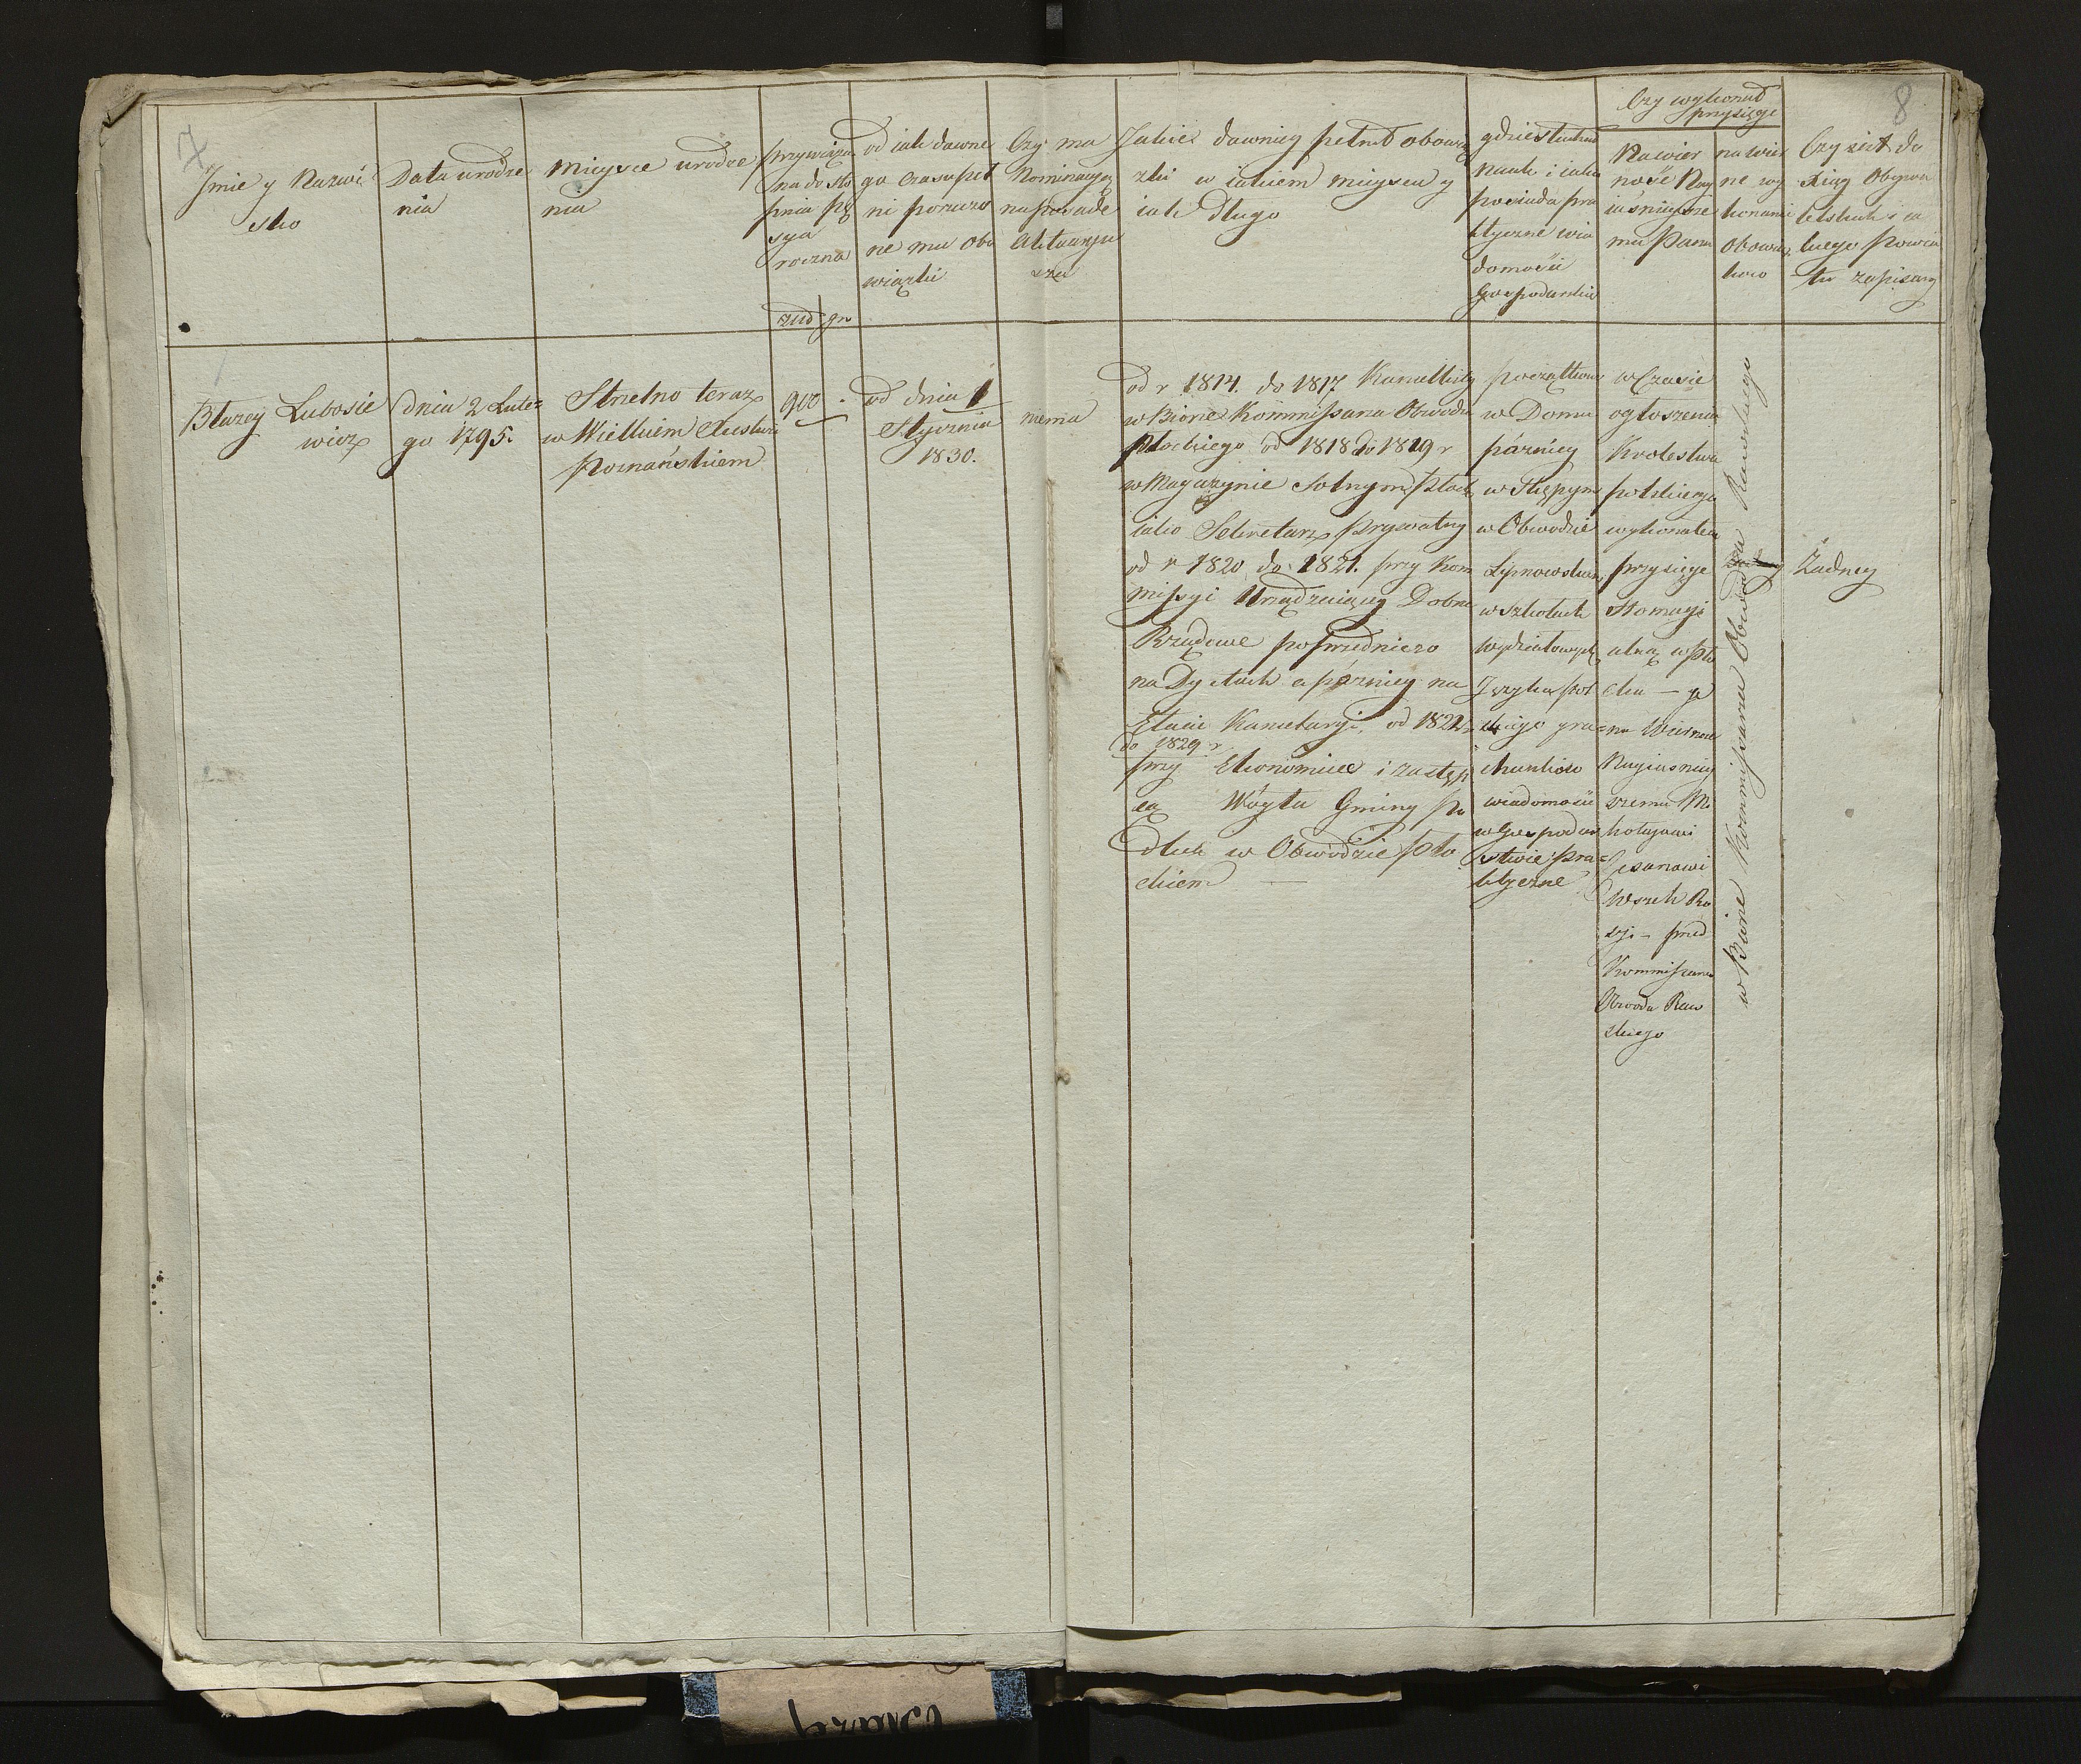 7
8
Jmie y Nazwi
sko
Data urodze
nia
Mieysce urodze
nia
przywiąza
na do sto
pnia pę
sya
roczna
złłd gr
od iak dawne
go czasu peł
ni porucza
ne mu obo
wiązki
Czy ma
Nominacyą
na posadę
Aktuaryu
sza
Jakie dawniey pełnił obowią
zki w iakiem mieyscu y
iak długo
gdzie słuchał
Nauk i iakie
posiada pra
ktyczne wia
domości
Gospodarskie
Czy wykonał
przysięgę
Na wier
ność Nay
iaśnieysze
mu Panu
na wier
ne wy
konanie
Obowiąz
ków
Czy iest do
Xiąg Obywa
telskich i ia
kiego Powia
tu zapisany
Błażey Lubosie
wicz
dnia 2 Lute
go 1795.
Strzelno teraz
w Wielkiem Xięstwie
Poznańskiem
900 .
od dnia 1
Stycznia
1830.
niema
od r 1814. do 1817 Kancellistą
w Biorze Kommissarza Obwodu
Płockiego od 1818 do 1819 r
w Magazynie Solnym Płock
iako Sekretarz prywatny
od r 1820 do 1821. przy Kom
missyi Urządzaiącey Dobra
Rządowe poprzedniczo
na Dyetach a pózniey na
Etacie Kancelaryi, od 1822
do 1829 r
przy Ekonomice i zastęp
cą Wóyta Gminy
w Obwodzie Pło
ckiem —
początkowo
w Domu
pózniey
w Skępym
w Obwodzie
Lipnowskim
w Szkołach
wydziałowych
Języka pol
skiego
wiadomości
w Gospodar
stwie pra
ktyczne
w Czasie
ogłoszenia
Krolestwa
polskiego
wykonałem
przysięgę
Homagi
alną w Pło
cku —
na Wierność
Nayiaśniey
szemu Mi
kołajowi
Cesarzowi
Wszech Ro
syi — przed
Kommissarzem
Obwodu Raw
skiego
w Biorze Kommissarza Obwodu Rawskiego
Żadney
Błażej